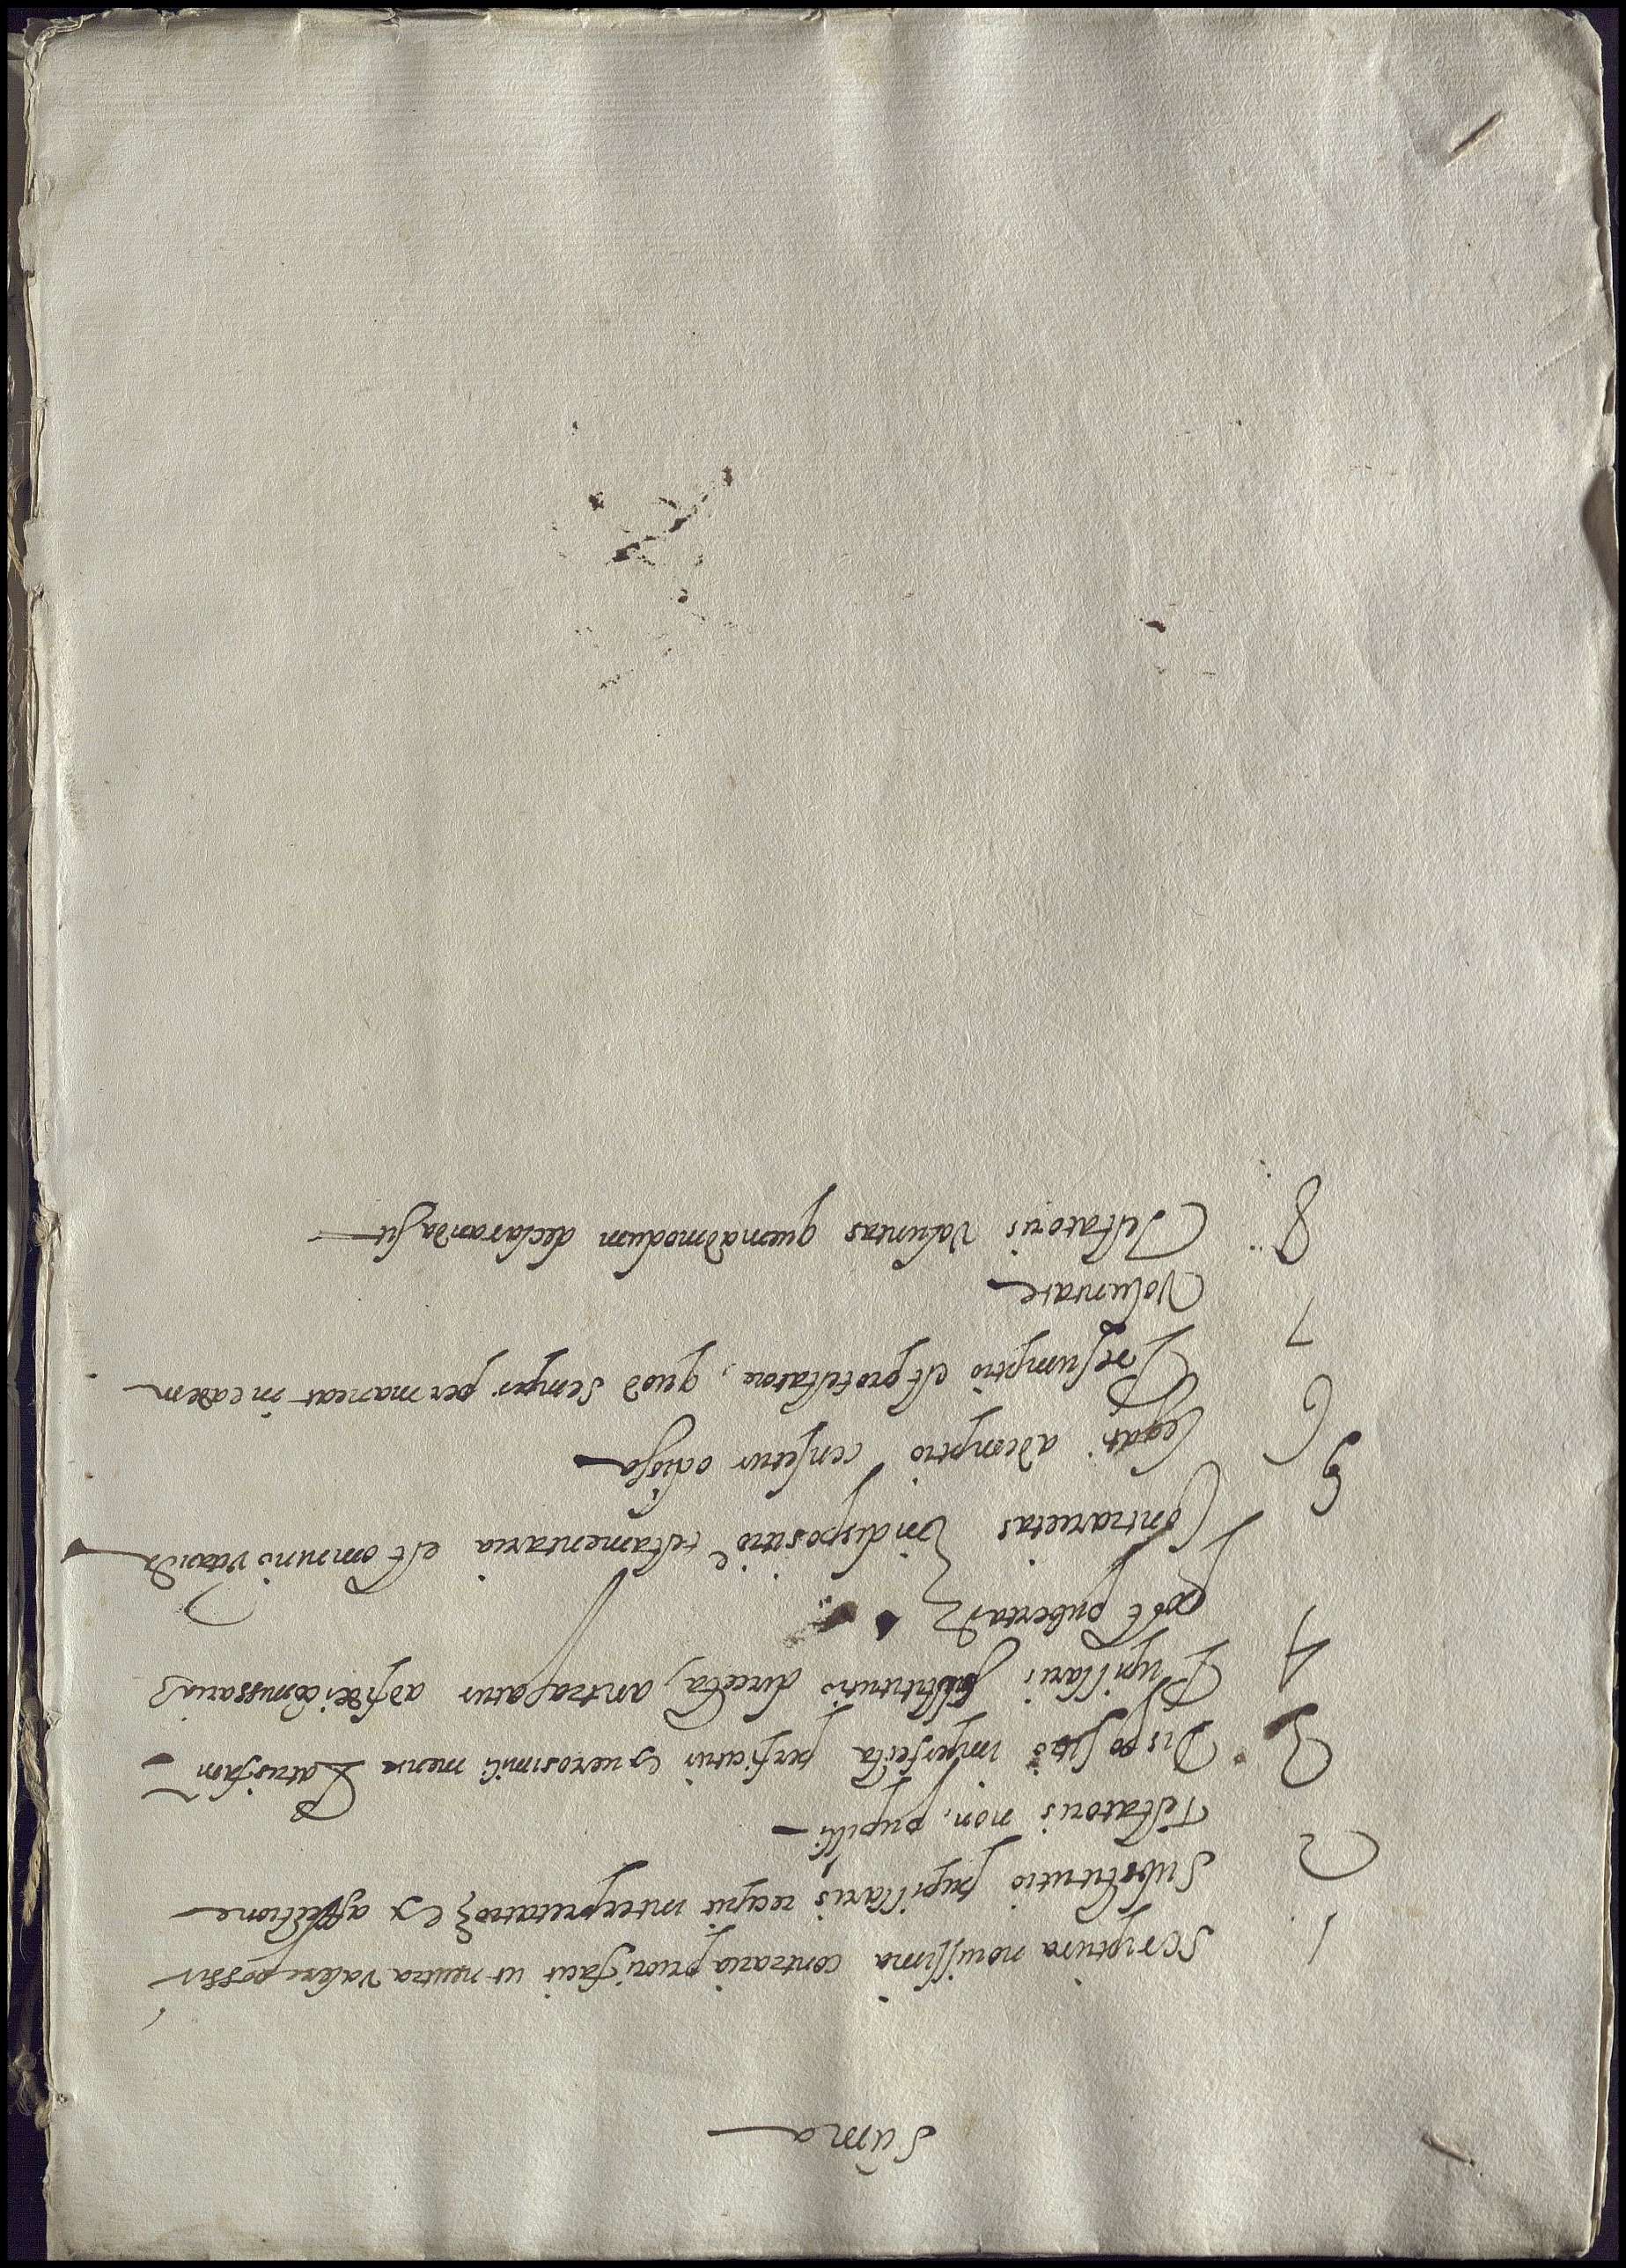 Sūma
1 Scriptura nouissima contraria priori facit ut neutra valere possit
2 Substitutio pupillaris recipit interpretatioē ex affectione
Testatoris non, pupilli
3 Dispositio imperfecta perficitur ex uerosimili mente
4 Pupillaris substitutio directa, ad fideicomissariā
post pubertatē
5 Contrarietas in dispositiōe testamentaria est omnino vitanda
6 Legati ademptio censetur odiosa
7 Presumptio est pro testatore, quod semper permaneat in eadem
voluntate
8 Testatoris voluntas quemadmodum declaranda sit